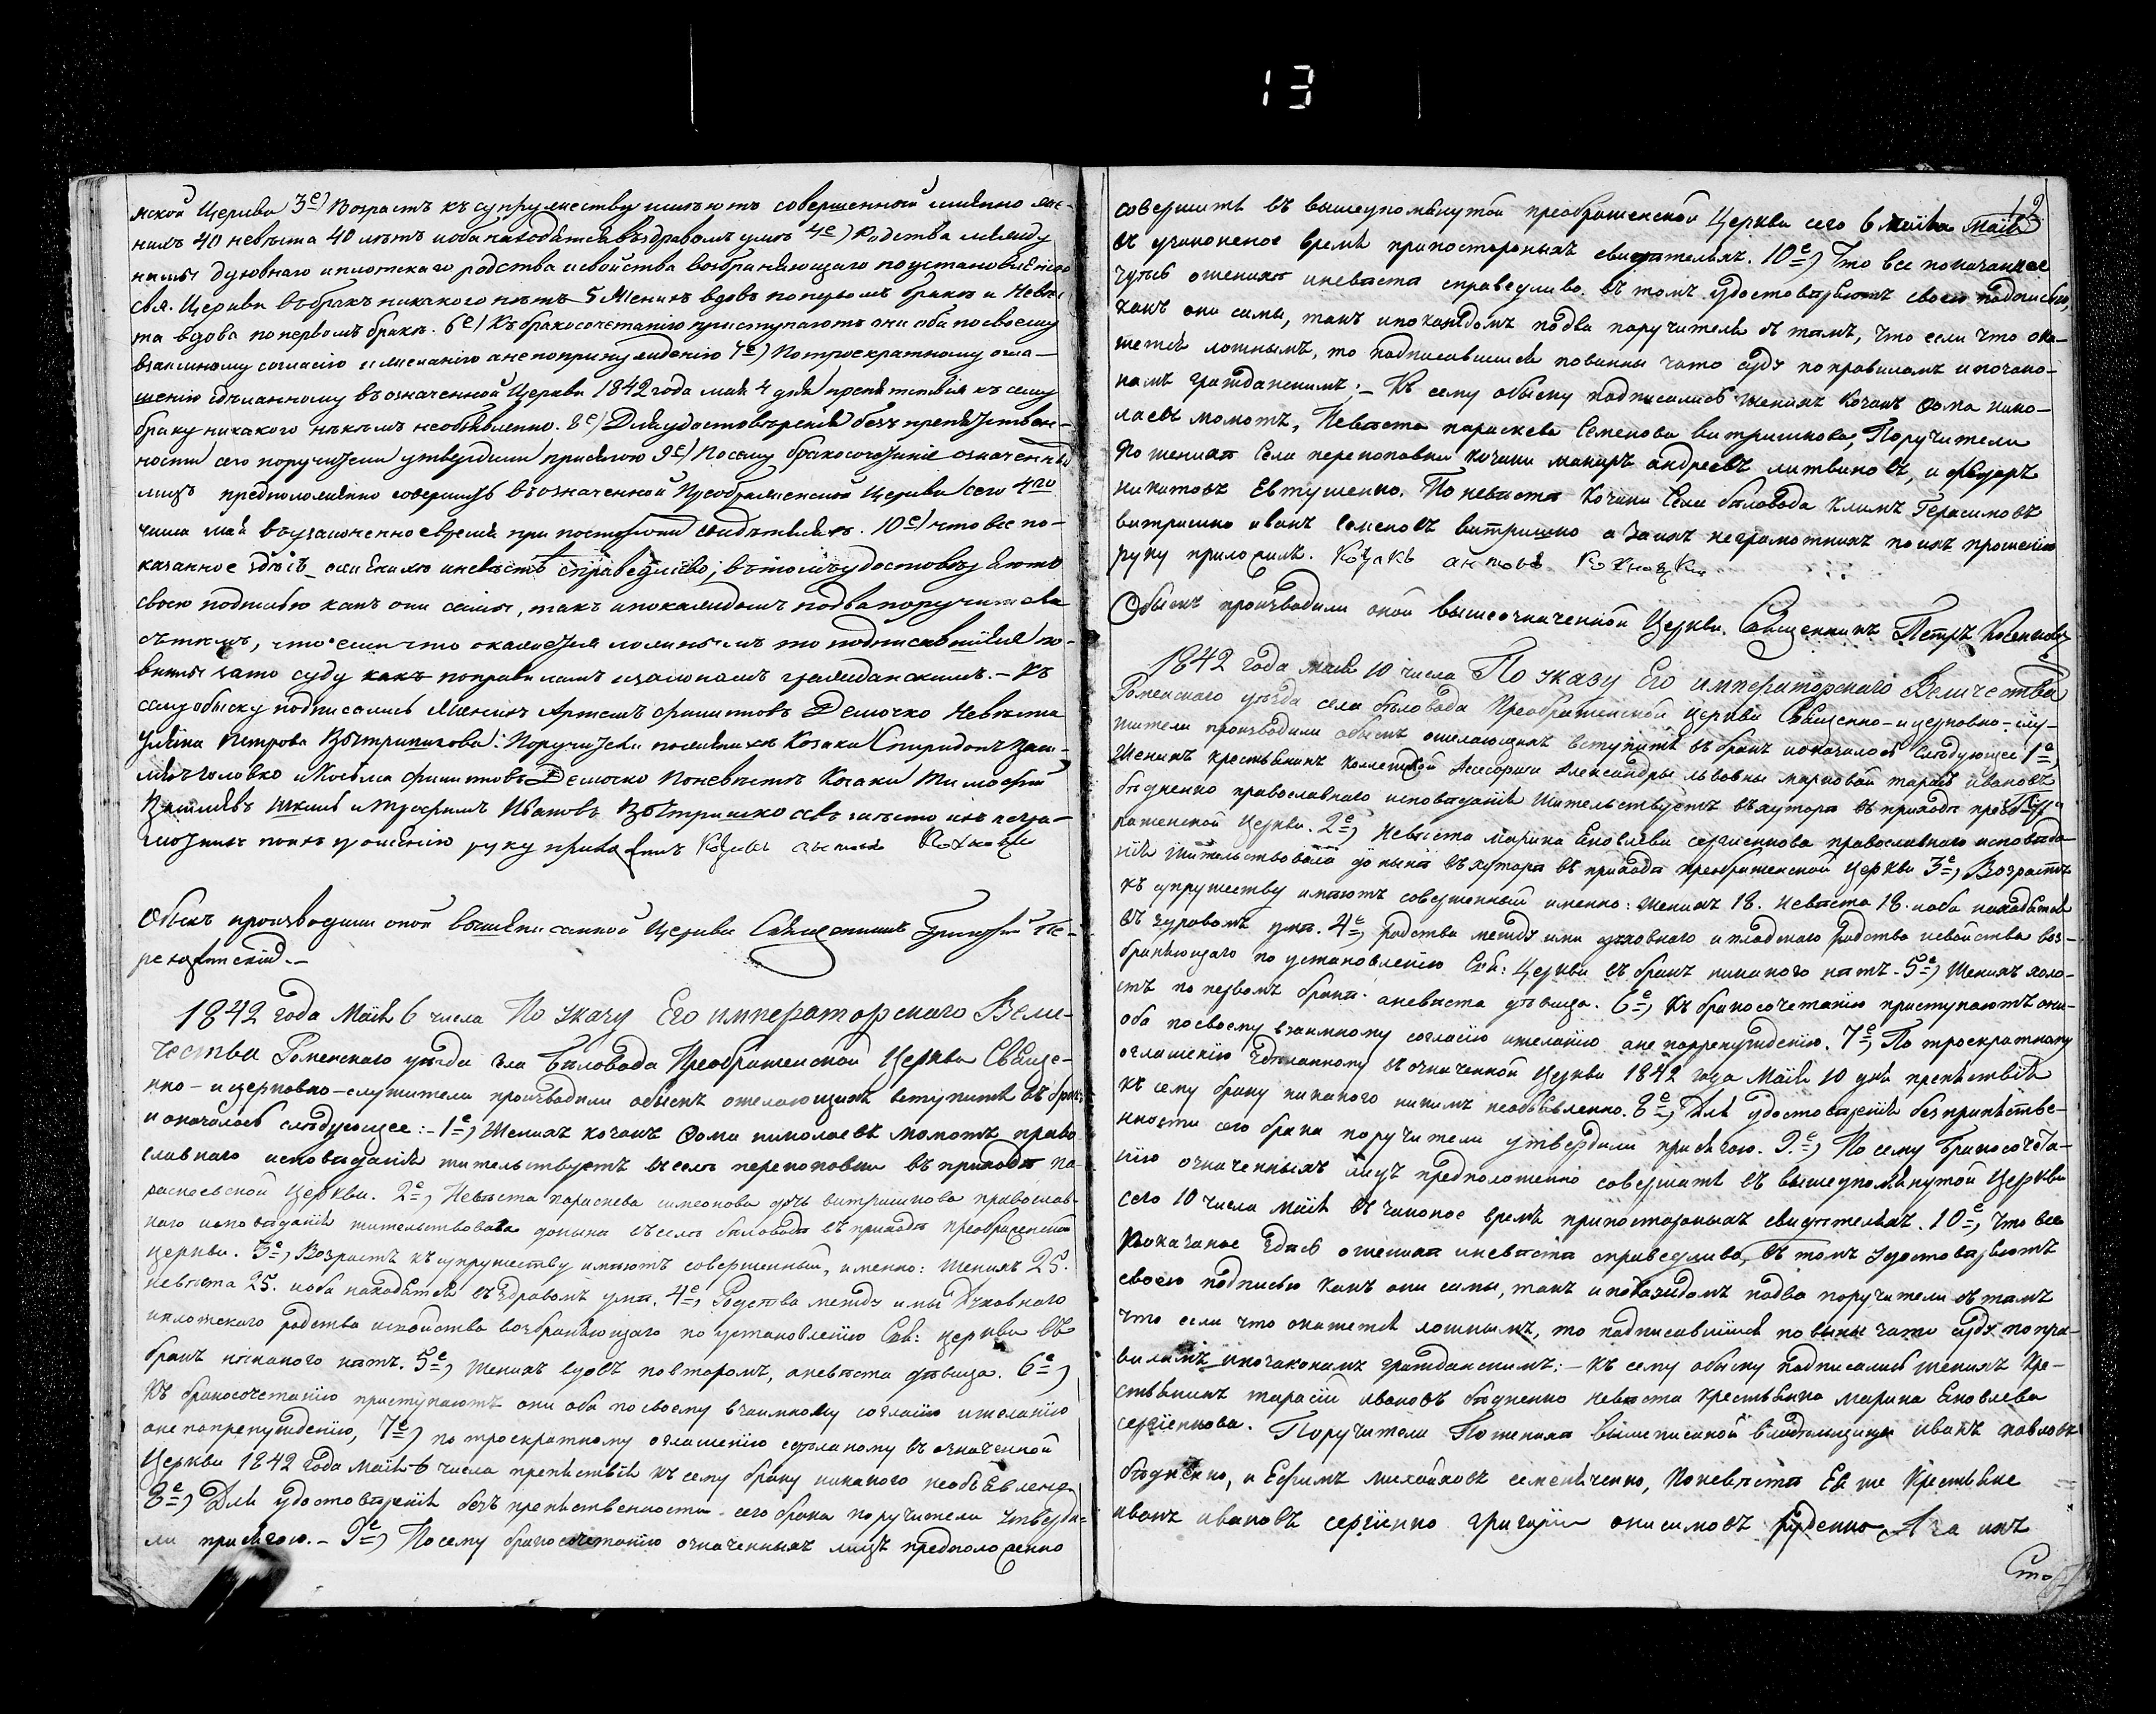 13
мской Церкви 3е) Возрастъ къ супружеству имеютъ совершенный именно же-
нихъ 40 невѣста 40 лѣтъ иоба находятся въ здравомъ умѣ 4е) Родства между
ними духовнаго иплотскаго родства исвойства возбраняющаго поустановленію
Свя. Церкви въбракъ никакого нѣтъ 5 Женихъ вдовъ попервомъ бракѣ и Невѣс
та вдова попервомъ бракѣ. 6е) Къ бракосочетанію приступаютъ они оба посвоему
взаимному согласію ижеланію анепопринужденію 7е) Потроекратному огла-
шенію сдѣланному въозначенной Церкви 1842 года мая 4 дня препятствія къ сему
браку никакого нѣкѣмъ необъявленно. 8е) Для удостовѣренія безъ препятствен-
ности сего поручители утвердили присягою 9е) Посему бракосочетаніе означенныхъ
лицъ предположенно совершить въозначенной Преображенской Церкви сего 4го
числа мая въузаконенное время при постороннихъ свидѣтеляхъ. 10е) что все по-
казанное здѣсь о женихѣ иневѣстѣ справедливо; вътомъ удостовѣряютъ
своею подписью какъ они сами, такъ ипокаждомъ подва поручителя
сътѣмъ, что если что окажется ложнымъ то подписавшіяся по-
винны зато суду какъ поправиламъ изаконамъ гражданскимъ. - Къ
сему обыску подписались Женихъ Артемъ филиповъ Демочко Невѣста
Уляна Петрова Вѣтришкова: Поручители поженихѣ Козаки Спиридонъ
иКосьма филиповъ Демочко Поневѣстѣ Козаки Тимофей
Василіевъ и Трофимъ Ивановъ Вѣтришко авъ мѣсто ихъ негра-
мотныхъ поихъ прошенію руку приложилъ Козакъ антонъ
Обыкъ производили оной вышеписанной Церкви Священникъ Григорій Пе-
1842 года Маія 6 числа По указу Его императорскаго Вели-
чества Роменскаго уѣзда села Бѣловода Преображенской Церкви Священ-
нно-и церковно-служители производили обыскъ ожелающихъ вступить въ бракъ
и оказалось слѣдующее: - 1е) Женихъ козакъ Фома николаевъ момотъ право
славнаго исповѣданія жительствуетъ въселѣ перекоповки въ приходѣ па-
раскевской Церкви. 2е) Невѣста параскева симеонова дочь витришкова православ-
наго исповѣданія жительствовала донынѣ въселѣ бѣловодѣ въ приходѣ преображенской
церкви. 3е) Возрастъ къ супружеству имѣютъ совершенный, именно: Женихъ 25.
невѣста 25. иоба находятся въ здравомъ умѣ. 4е) Родства между ими Духовнаго
иплотскаго родства исвойства возбраняющаго по установленію Свя: церкви въ
бракъ никакого нѣтъ. 5е) Женихъ вдовъ повторомъ, аневѣста дѣвица. 6е)
Къ бракосочетанію приступаютъ они оба посвоему взаимному согласію ижеланію
ане попренужденію, 7е) по троекратному оглашенію сдѣланому въ означенной
Церкви 1842 года маія 6 числа препятствія къ сему браку никакого необъявлено
8е) Для удостовѣренія безъ препятственности сего брака поручители утверди-
ли присягою. - 9е) Посему бракосочетанію означенныхъ лицъ предположенно
совершить въ вышеупомянутой преображенской Церкви сего 6 маія
въ узаконеное время припостороныхъ свидѣтеляхъ. 10е) Что все показанное
здѣсь оженихѣ иневѣстѣ справедливо въ томъ удостовѣряютъ своею подписью,
какъ они сами, такъ ипокаждомъ подва поручителя съ тѣмъ, что если что ока-
жется ложнымъ, то подписавшіеся повинны зато суду поправиламъ изакона-
намъ гражданскимъ; - Къ сему обыску подписались женихъ Козакъ Фома нико-
лаевъ момотъ, Невѣста параскева Семенова витришкова, Поручители
По женихѣ Села перекоповки козаки макаръ андреевъ литвиновъ, и федоръ
никитовъ Евтушенко. По невѣстѣ Козаки Села бѣловода Климъ Герасимовъ
витришко иванъ семеновъ витришко а заихъ неграмотныхъ поихъ прошенію
руку приложилъ. Козакъ антонъ
Обыскъ производили оной вышеозначенной Церкви. Священникъ Петръ
1842 года маія 10 числа По указу Его императорскаго Величества
Роменскаго уѣзда села бѣловода Преображенской церкви Священно-и церковно-слу-
жители производили обыскъ ожелающихъ вступить въ бракъ иоказалось слѣдующее 1е)
Женихъ крестьянинъ Коллежской Асесорши Александры львовны марковой тарасъ ивановъ
бѣдненко православнаго исповѣданія жительствуетъ въхуторѣ въ приходѣ преоб-
раженской Церкви. 2е) Невѣста марина Ековлева сергіенкова православнаго исповѣда-
нія жительствовала донынѣ въхуторѣ въ приходѣ преображенской церкви 3е) Возрастъ
къ супружеству имѣютъ совершенный именно: женихъ 18. невѣста 18. иоба находятся
въ здравомъ умѣ. 4е) родства между ими духовнаго иплодскаго родства исвойства воз-
браняющаго по установленію Свя: Церкви въ бракъ никакого нѣтъ. 5е) Женихъ холо-
стъ по первомъ бракѣ. аневѣста дѣвица. 6е) Къ бракосочетанію приступаютъ они
оба посвоему взаимному согласію ижеланію ане попренужденію. 7е) По троекратному
оглашенію сдѣланному въ означенной Церкви 1842 года Маія 10 дня препятствія
къ сему браку никакого никимъ необъявленно. 8е) Для удостовѣренія безпрепятстве-
нности сего брака поручители утвердили присягою. 9.е) По сему бракосочета-
нію означенныхъ лицъ предположенно совершить въ вышеупомянутой Церкви
сего 10 числа маія въ законое время припостороныхъ свидѣтеляхъ. 10е) Что все
показаное здѣсь оженихѣ иневѣстѣ справедливо, въ томъ удостовѣряютъ
своею подписью какъ они сами, такъ ипокаждомъ подва поручители съ тѣмъ
что если что окажется ложнымъ, то подписавшіися повины зато суду попра-
виламъ изаконамъ гражданскимъ: - къ сему обыску подписались женихъ Кре-
стьянинъ тарасій ивановъ бѣдненко невѣста крестьянка марина Ековлева
сергіенкова. Поручители По женихѣ вышеписаной владѣлицы иванъ павловъ
бѣдненко, и Ефимъ михайловъ семенѣченко, По невѣстѣ Ея же Крестьяне
иванъ ивановъ сергіенко григорій онисимовъ руденко А за ихъ